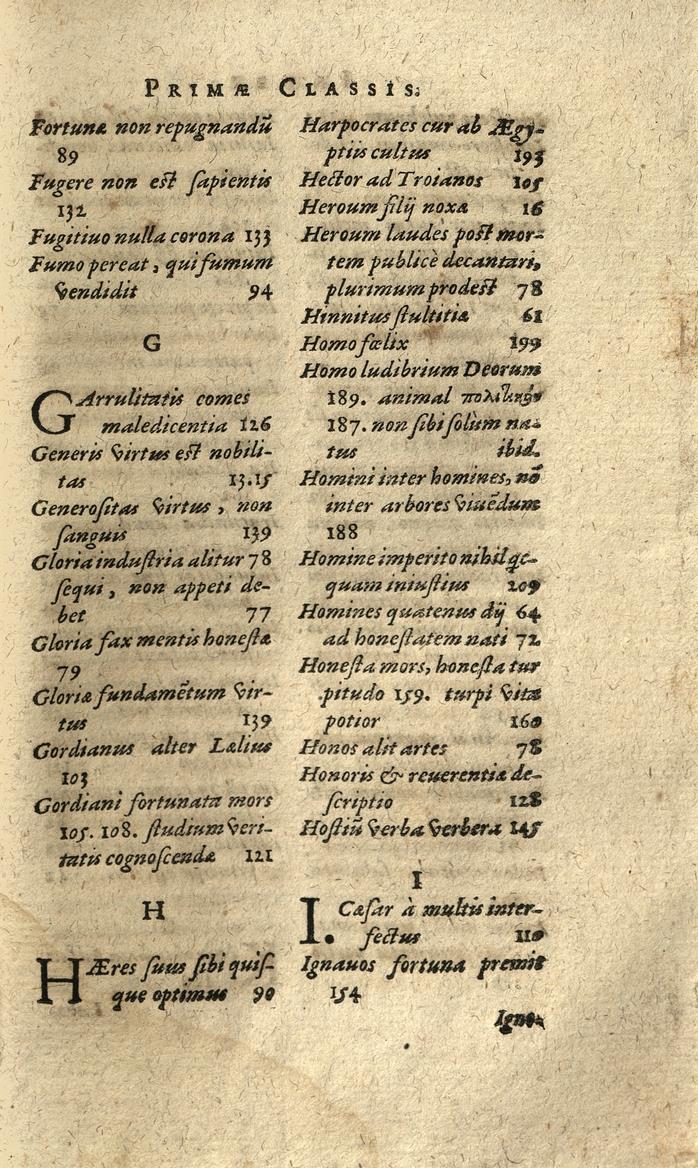 PRIMÆ CLASSIS.
Fortunæ non repugnandũ
89
Fugere non est sapientis
132
Fugitiuo nulla corona 133
Fumo pereat, qui fumum
vendidit 94
G
GArrulitatis comes
maledicentia 126
Generis virtus est nobili-
tas 13.15
Generositas virtus, non
sanguis 139
Gloria industria alitur 78
sequi, non appeti de-
bet 77
Gloria fax mentis honestæ
79
Gloriæ fundamẽtum vir-
tus 139
Gordianus alter Lælius
103
Gordiani fortunata mors
105. 108. studium veri-
tatis cognoscendæ 121
H
HÆres suus sibi quis-
que optimus 90
Harpocrates cur ab Ægy-
ptiis cultus 193
Hector ad Troianos 105
Heroum filij noxæ 16
Heroum laudes post mor-
tem publicè decantari,
plurimum prodest 78
Hinnitus stultitiæ 61
Homo fœlix 199
Homo ludibrium Deorum
189. animal
187. non sibi solùm na-
tus ibid.
Homini inter homines, nõ
inter arbores viuẽdum
188
Homine imperito nihil
quam iniustius 209
Homines quatenus dij 64
ad honestatem nati 72
Honesta mors, honesta tur
pitudo 159. turpi vitæ
potior 160
Honos alit artes 78
Honoris & reuerentiæ de-
scriptio 128
Hostiũ verba verbera 145
I
I. Cæsar à multis inter-
fectus 110
Ignauos fortuna premit
154
Igno-